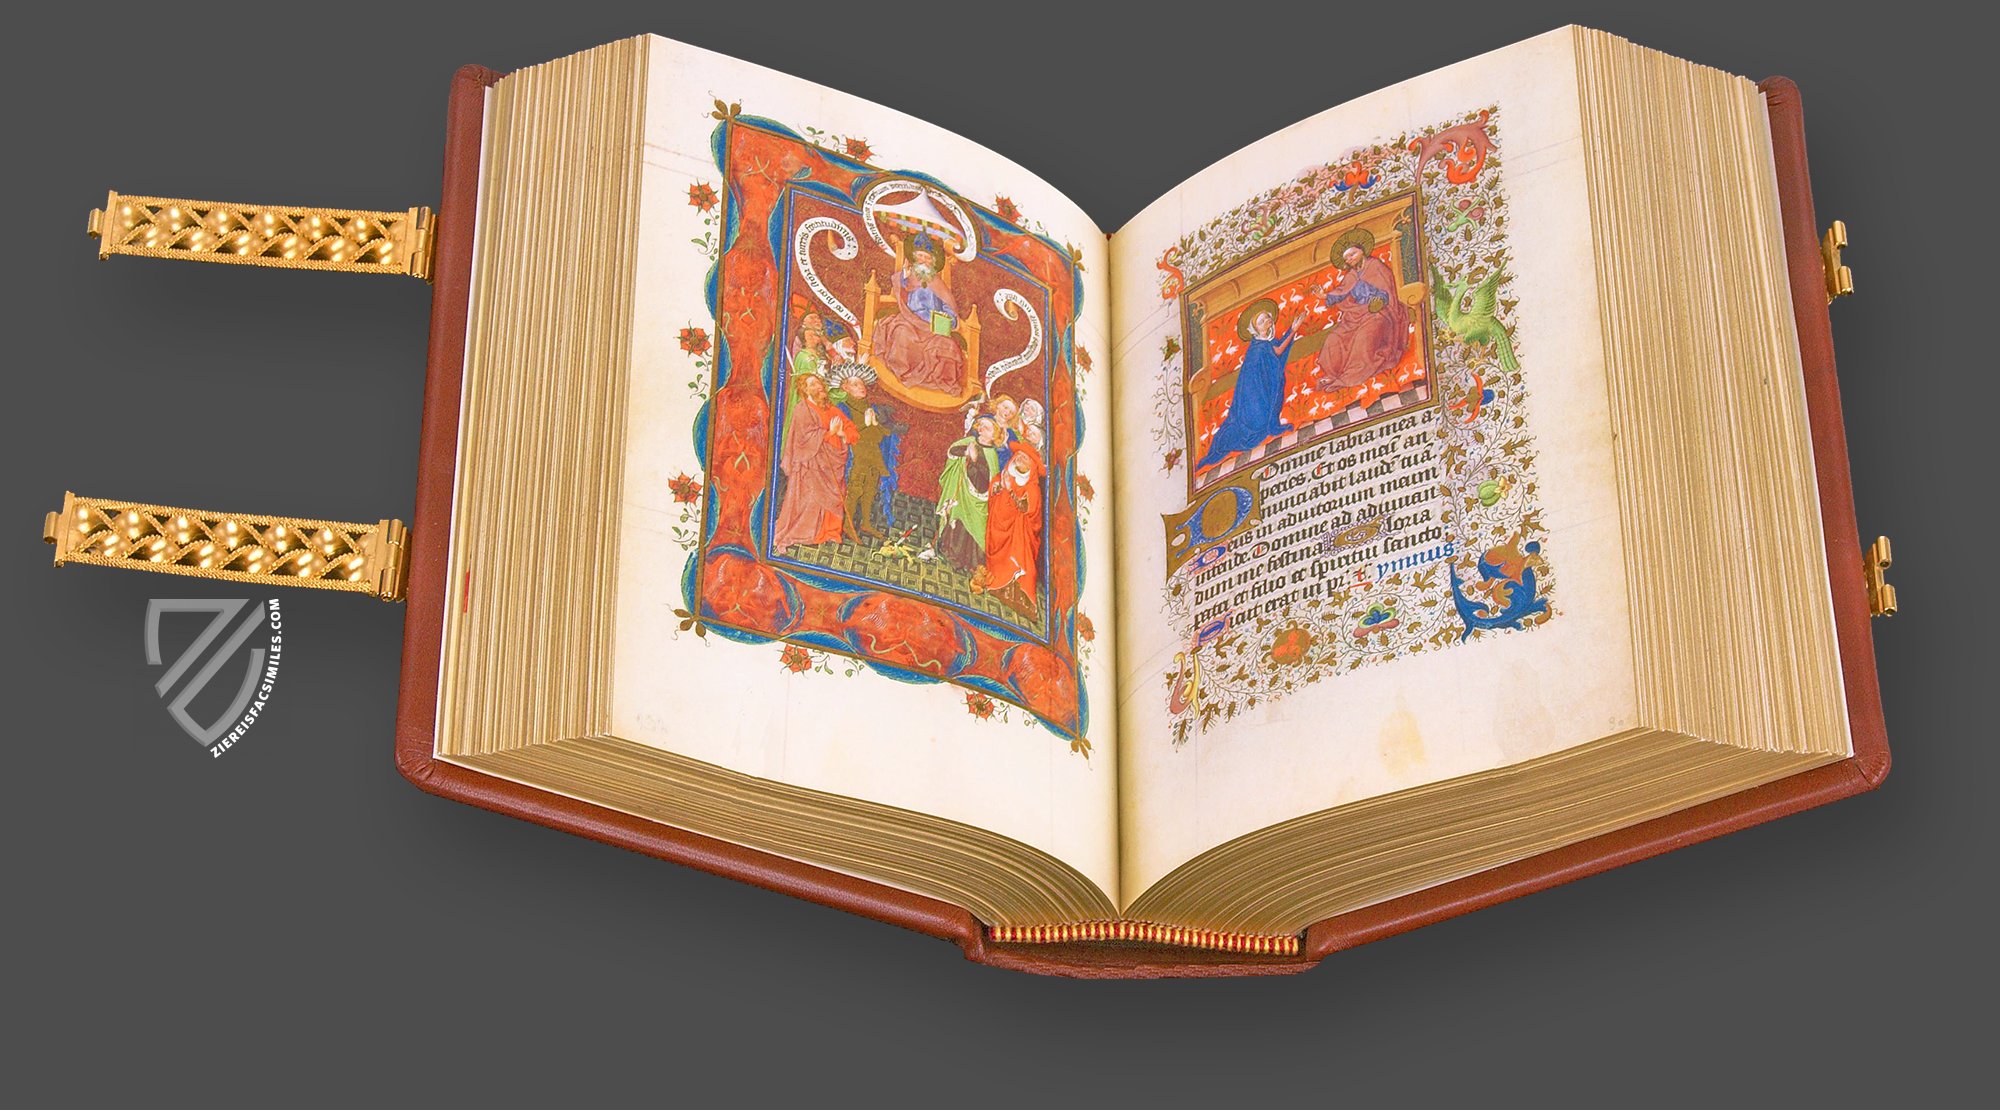 Domine labia mea a
peries. Et os meū an
nunciabit laudē tuā.
Deus in adiutorium meum
intende. Domine ad adiuvan
dum me festina Gloria
patri et filio et spiritui sancto
Sicut erat in pr. r. ymnus
ZIEREISFACSIMILES.COM